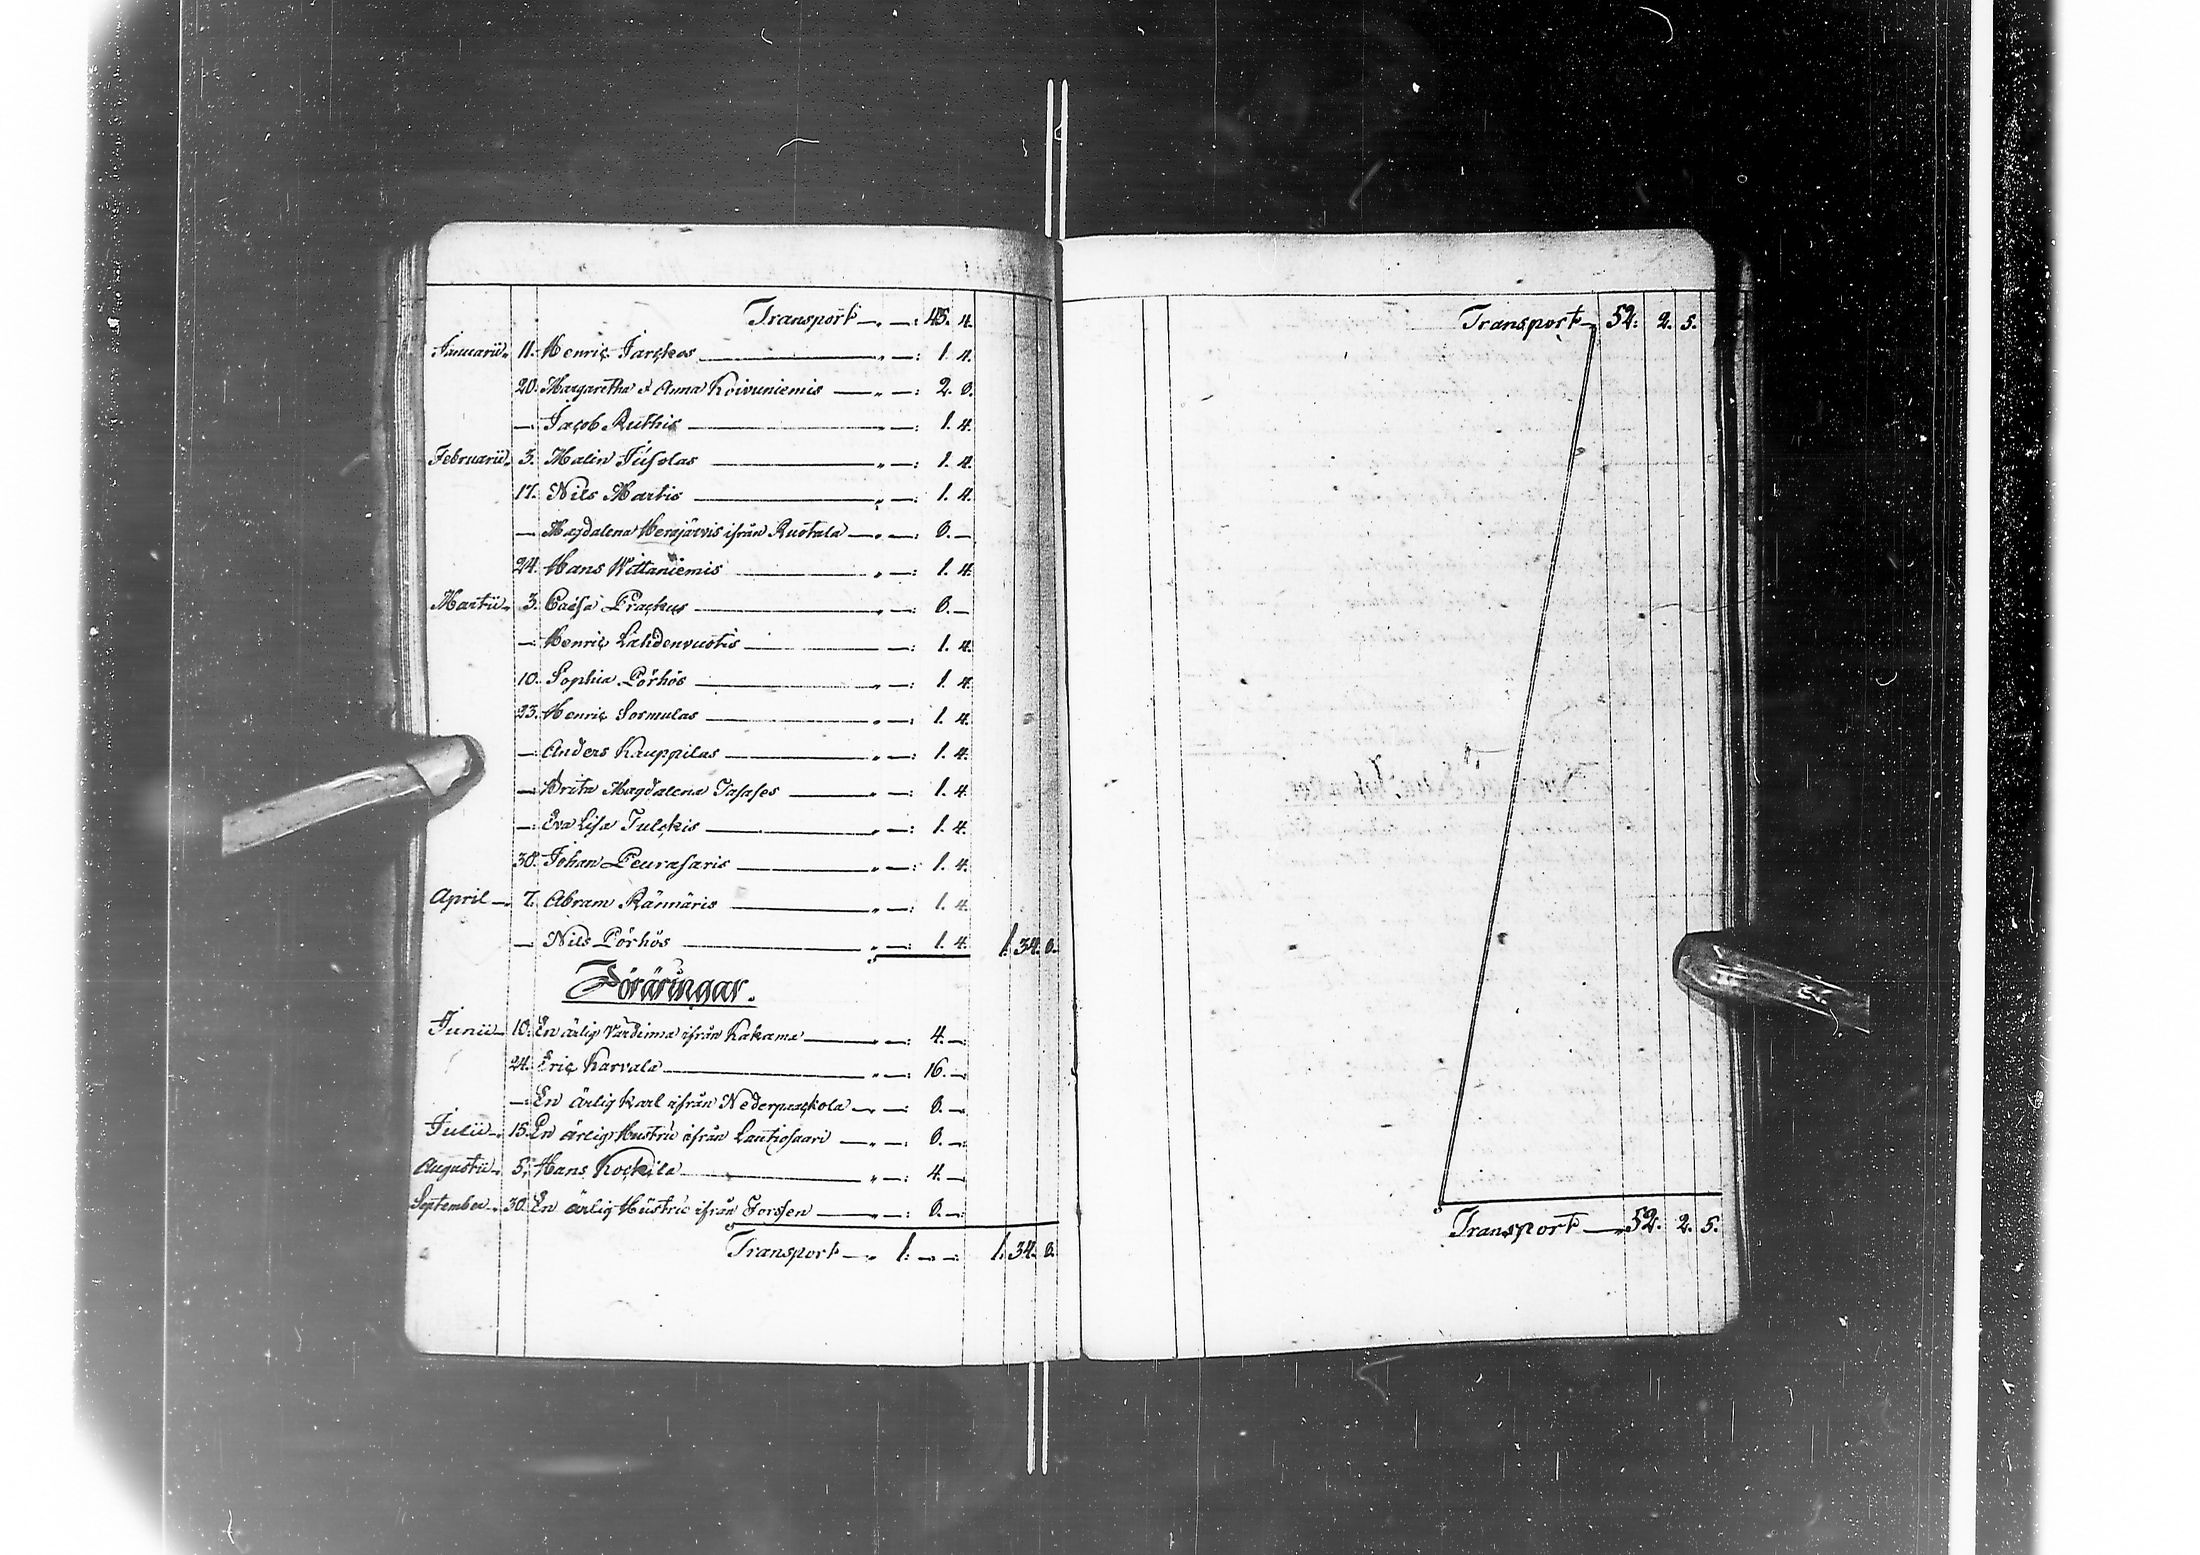 Transport —„—: 45. 4.
Januarii„ 11. Henric Jarckos —„—: 1. 4.
20. Margaretha & Anna Koivuniemis —„—: 2. 8.
— Jacob Ruthis —„—: 1. 4.
Februarii„ 3. Malin Jusolas —„—: 1. 4.
17. Nils Martis —„—: 1. 4.
— Magdalena Herajärvis ifrån Ruotala —„—: 8. —
24. Hans Wittaniemis —„—: 1. 4.
Martii„ 3. Caisa Prackus —„—: 8. —
— Henric Lahdenvuotis —„—: 1. 4.
10. Sophia Pörhös —„—: 1. 4.
23. Henric Sormulas —„—: 1. 4.
— Anders Kauppilas —„—: 1. 4.
— Brita Magdalena Tasases —„—: 1. 4.
— Eva Lisa Tulckis —„—: 1. 4.
30. Johan Peurasaris —„—: 1. 4.
April — 7. Abram Rännäris —„—: 1. 4.
— Nils Pörhös —„—: 1. 4. 1. 34. 8.
Föräringar.
Junii — 10. En ärlig Värdinna ifrån Kakama —„—: 4. —
24. Eric Karvala —„—: 16. —
— En ärlig karl ifrån Nederpaackola —„—: 8. —
Julii — 15. En ärlig Hustru ifrån Lautiosaari —„—: 8. —
Augustii„ 5. Hans Kockila —„—: 4. —
September„ 30. En ärlig Hustru ifrån Jorssen —„—: 8. —
Transport —„ 1. — — 1. 34. 8.
Transport —„ 52. 2. 5.
Transport —„ 52. 2. 5.